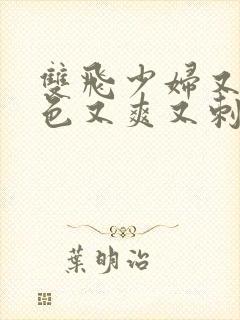 雙飛少婦又
色又爽又刺
葉明治